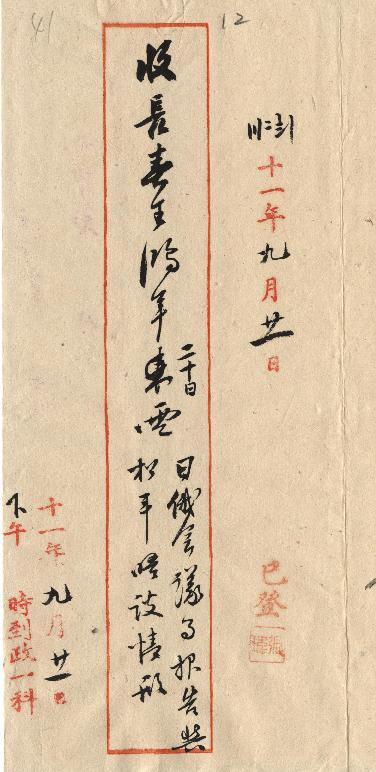 12
41
十一年九月廿一日
已登
收長春王鴻年來電 二十日
日俄會議事報告與
松平晤談情形
十一年九月廿一日
下午 時到政一科